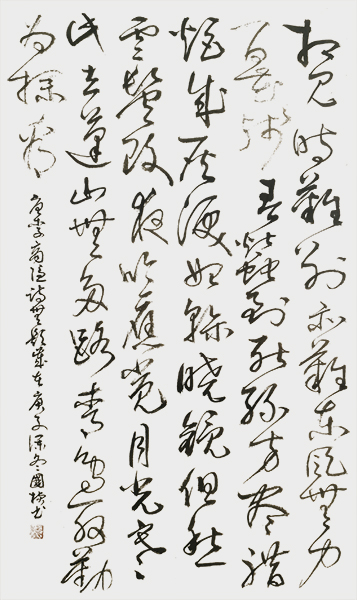 相見時難別亦難東風無力
百花殘春蠶到死絲方盡蠟
炬成灰淚始乾曉鏡但愁
雲鬢改夜吟應覺月光寒
此去蓬山無多路青鳥殷勤
為探看
唐李商隱詩無題歲在庚子深冬國書